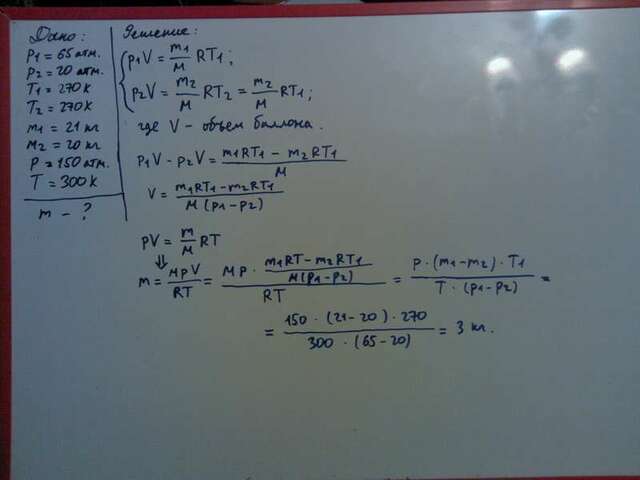 Дано:
P1 = 65 атм.
P2 = 20 атм.
T1 = 270 К
T2 = 270 К
m1 = 21 кг
m2 = 20 кг
P = 150 атм.
T = 300 К
m - ?
Решение:
P1V = m1/M RT1;
P2V = m2/M RT2 = m2/M RT1;
где V - объем баллона.
P1V - P2V = (m1RT1 - m2RT1)/M
V = (m1RT1 - m2RT1)/(M(P1 - P2))
PV = m/M RT
⇓
m = MPV/RT = (MP · (m1RT - m2RT1)/(M(P1 - P2)))/RT = (P · (m1 - m2) · T1)/(T · (P1 - P2)) =
= (150 · (21 - 20) · 270)/(300 · (65 - 20)) = 3 кг.